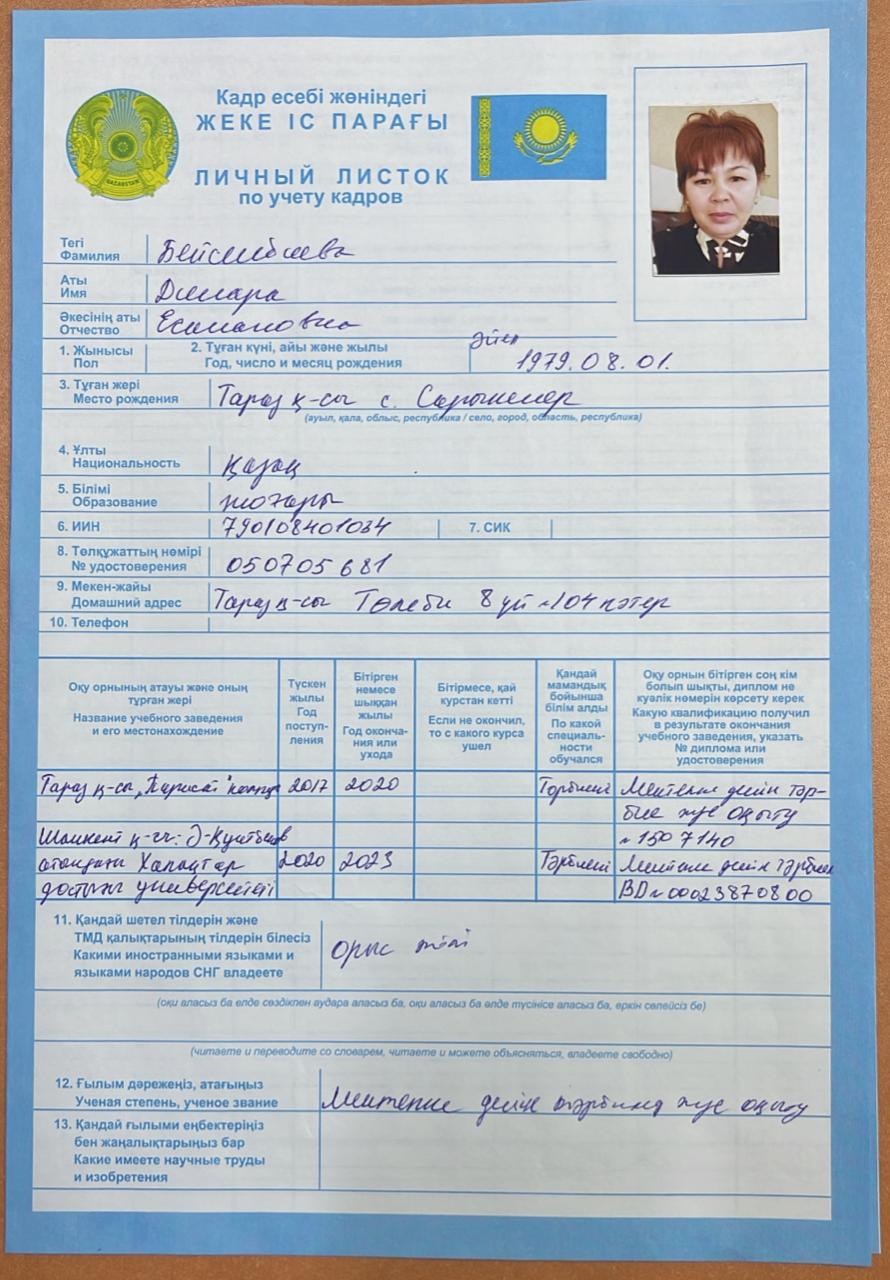 Кадр есебі жөніндегі
ЖЕКЕ ІС ПАРАҒЫ
ЛИЧНЫЙ ЛИСТОК
по учету кадров
KAZAKHSTAN
Тегі
Фамилия
Аты
Имя Динара
Әкесінің аты
Отчество
1. Жынысы 2. Туған күні, айы және жылы әйел
Пол Год, число и месяц рождения 1979.08.01.
3. Туған жері
Место рождения Тараз қ-сы с.
(ауыл, қала, облыс, республика / село, город, область, республика)
4. Ұлты
Национальность Қазақ
5. Білімі
Образование жоғары
6. ИИН 790108401034 7. СИК
8. Төлқұжаттың нөмірі
№ удостоверения 050705681
9. Мекен-жайы
Домашний адрес Тараз қ-сы Төле би 8 үй 104 пәтер
10. Телефон
Оқу орнының атауы және оның
тұрған жері
Название учебного заведения
и его местонахождение
Түскен
жылы
Год
поступ-
ления
Бітірген
немесе
шыққан
жылы
Год оконча-
ния или
ухода
Бітірмесе, қай
курстан кетті
Если не окончил,
то с какого курса
ушел
Қандай
мамандық
бойынша
білім алды
По какой
специаль-
ности
обучался
Оқу орнын бітірген соң кім
болып шықты, диплом не
куәлік нөмерін көрсету керек
Какую квалификацию получил
в результате окончания
учебного заведения, указать
№ диплома или
удостоверения
Тараз қ-сы, 2017 2020 Тәрбиеші Мектепке дейін тәр-
бие және оқыту
1507140
Шымкент қ-сы: Ә.Қуатбеков
атындағы Халықтар 2020 2023 Тәрбиеші Мектепке дейін тәрбие
достығы университеті BD 00023870800
11. Қандай шетел тілдерін және
ТМД қалықтарының тілдерін білесіз
Какими иностранными языками и
языками народов СНГ владеете
орыс тілі
(оқи аласыз ба елде сөздікпен аудара аласыз ба, оқи аласыз ба әлде түсінісе аласыз ба, еркін сөлейсіз бе)
(читаете и переводите со словарем, читаете и можете объясняться, владеете свободно)
12. Ғылым дәрежеңіз, атағыңыз
Ученая степень, ученое звание Мектепке дейін тәрбие және оқыту
13. Қандай ғылыми еңбектеріңіз
бен жаңалықтарыңыз бар
Какие имеете научные труды
и изобретения